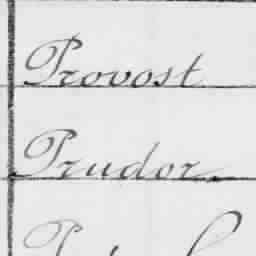 Provost
Prudor